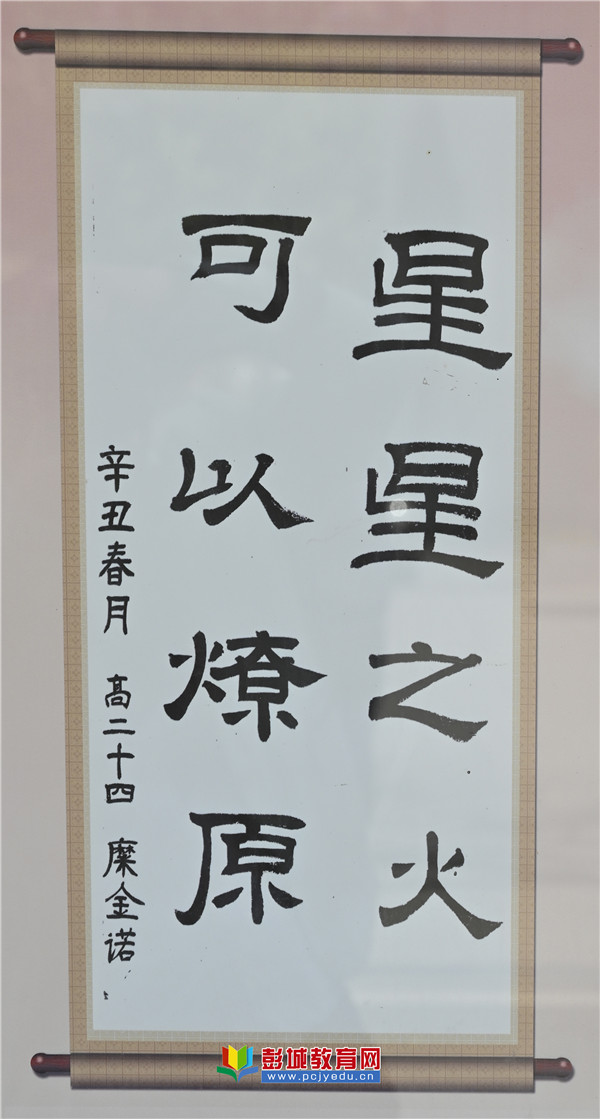 星星之火
可以燎原
辛丑春月 高二十四 糜金诺
彭城教育网
www.pcjyedu.cn